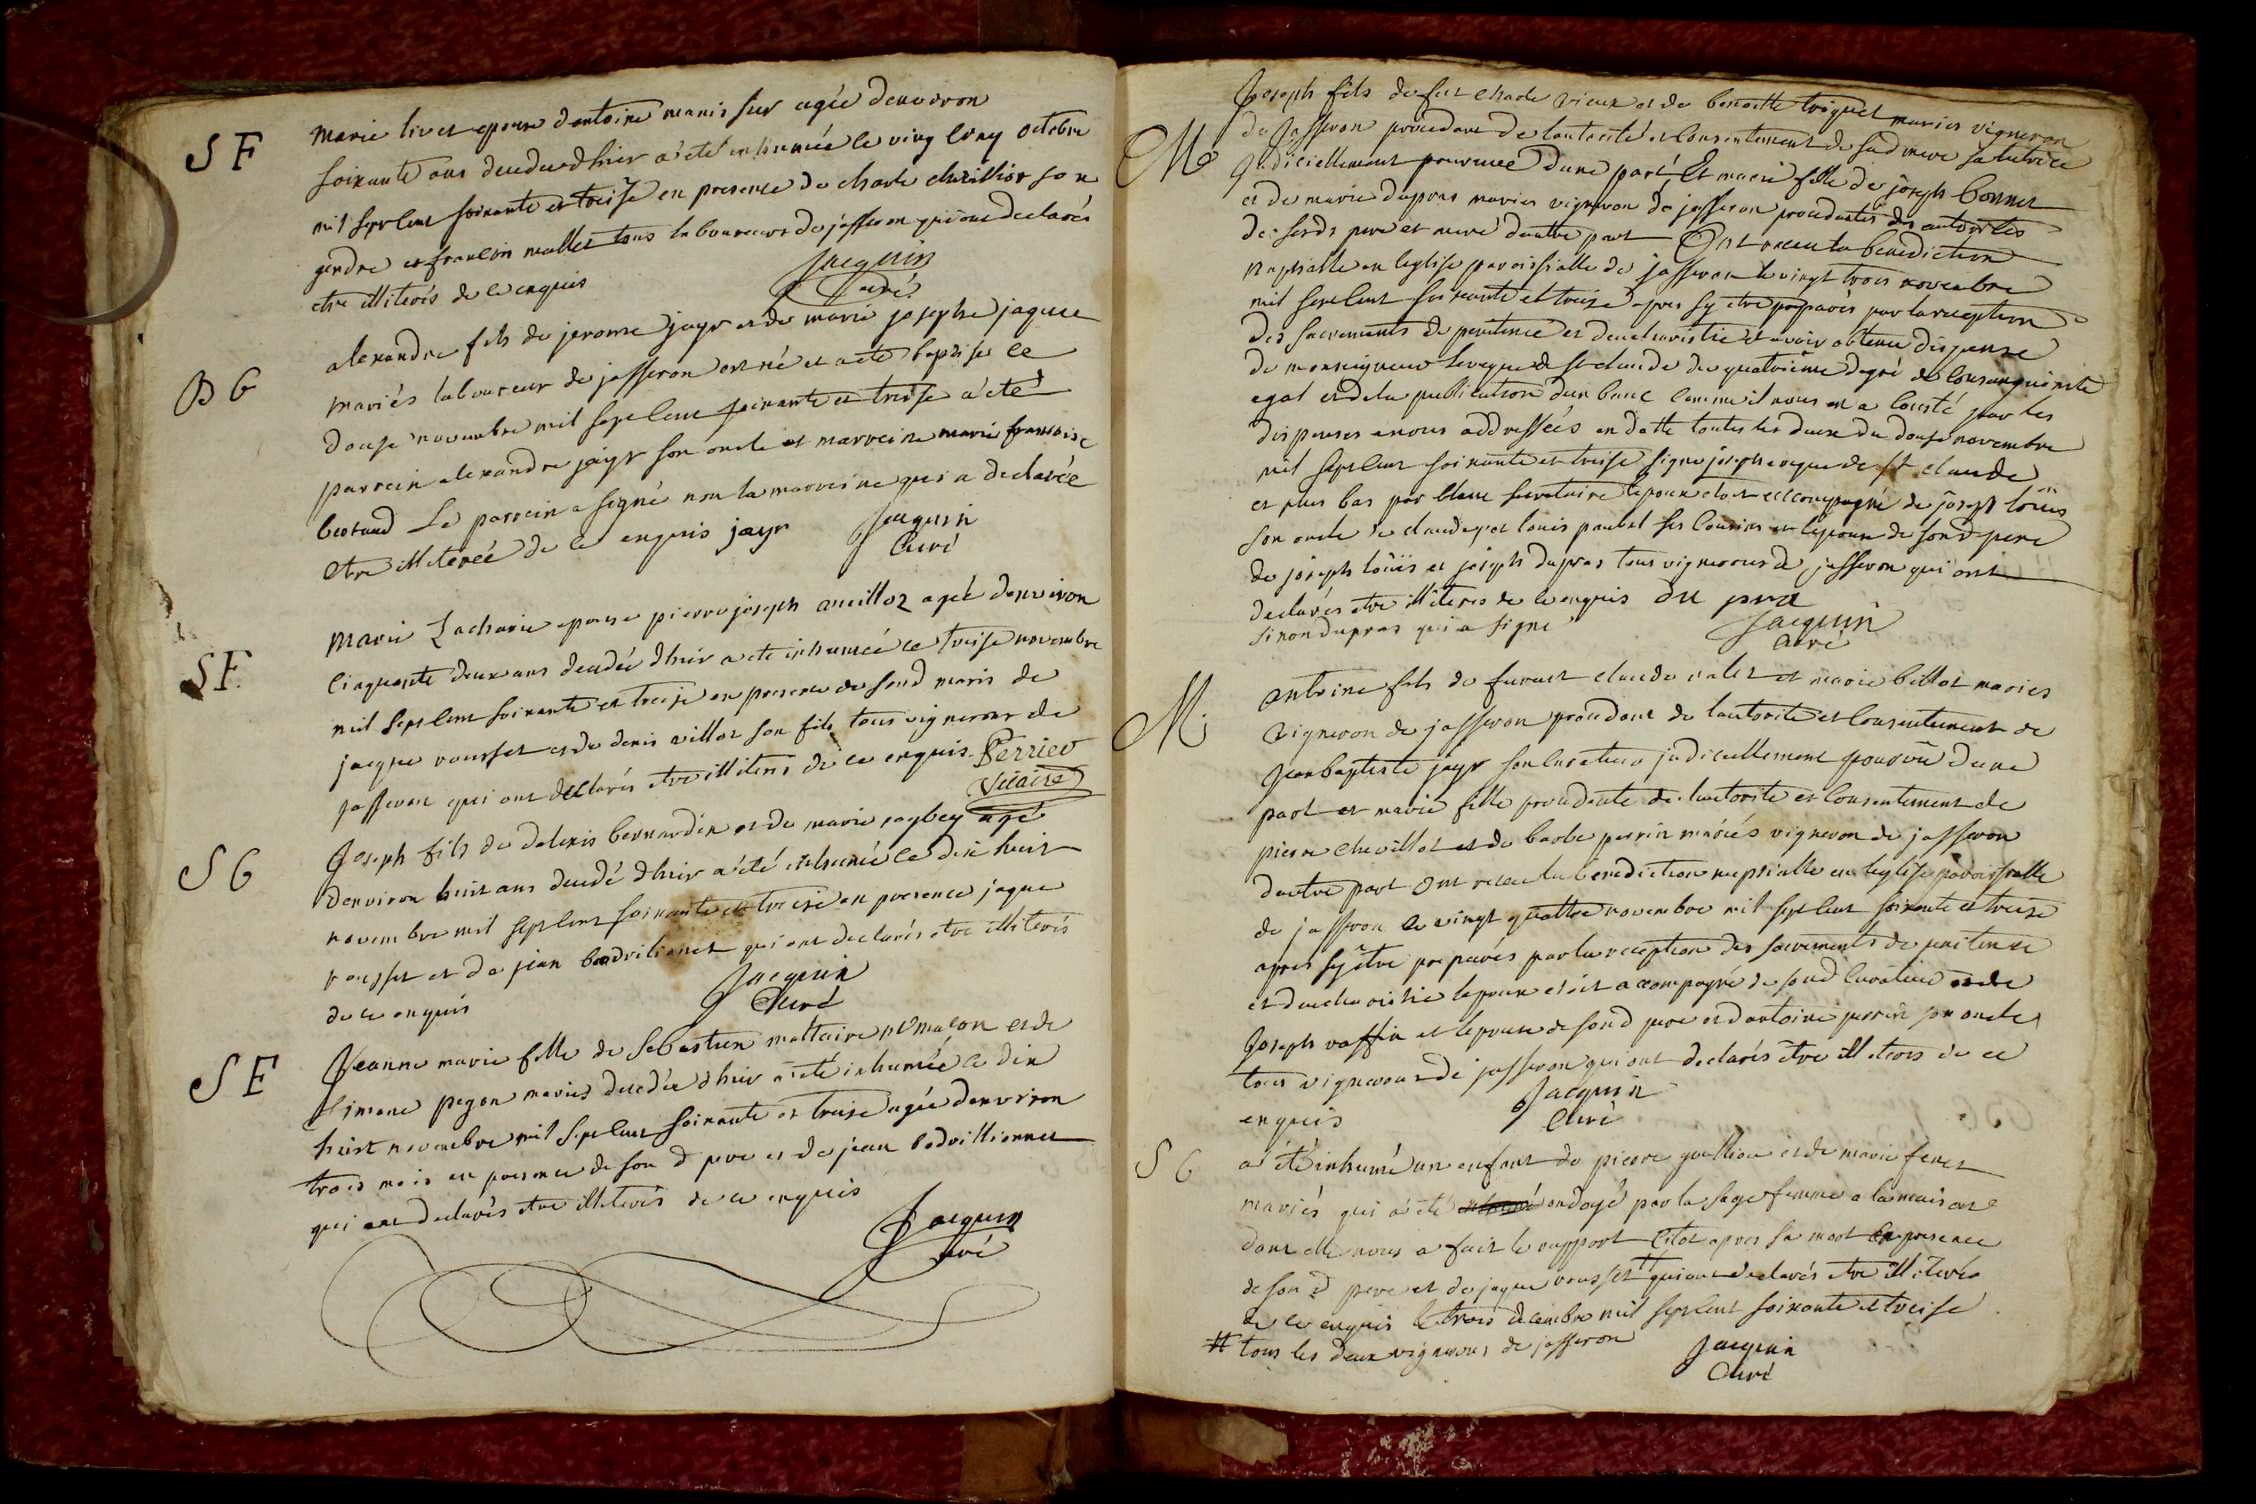 SF
Marie livet epouse dantoine manissier agée denviron
soixante ans decedée dhier a été inhumée le ving cinq octobre
mil sept cent soixante et treise en presence de charle chevillior son
gendre et francois mallet tous laboureurs de jasseron qui ont declarés
etre illiterés de ce enquis
Jacquin
curé
BG
alexandre fils de jerome jayr et de marie josephe jaques
mariés laboureur de jasseron est né et a eté baptisé le
douse novembre mil sept cent soixante et treise a été
parrein alexandre jayr son oncle et marreine marie francoise
bertrand Le parrein a signé non la marreine qui a declarée
etre illiterée de ce enquis jayr
Jacquin
curé
SF
Marie Zacharie epouse pierre joseph anvilloz agée denviron
cinquante deux ans decedée dhier a eté inhumée ce treise novembre
mil sept cent soixante et treise en presence de sond maris de
jacque rousset et de denis villot son fils tous vignerons de
jasseron qui ont declarés etre illiterés de ce enquis Perrier
Vicaire
SG
Joseph fils de dalexis bernardin et de marie agé
denviron huit ans decedé dhier a été inhumé le dix huit
novembre mil sept cent soixante et treise en presence jaque
rousset et de jean qui ont declarés etre illiterés
de ce enquis
Jacquin
Curé
SF
Jeanne marie fille de Sebastien mettaire macon et de
Simone pegon mariés decedée dhier a été inhumée le dix
huit novembre mil sept cent soixante et treise agée denviron
trois mois en presence de son d pere et de jean badvillionnet
qui ont declarés etre illiterés de ce enquis
Jacquin
curé
M
Joseph fils de feu charle vieux et de benoitte troquet mariés vigneron
de Jasseron procedant de lautorité et consentement de sad mere sa tutrice
judiciellement pourvuee dune part Et marie fille de joseph bonnet
et de marie dupras mariés vigneron de jasseron procedante des autorités
de sesds pere et mere dautre part Ont receu la benediction
nuptialle en leglise paroissialle de jasseron le vingt trois novembre
mil sept cent soixante et treise apres sy etre preparés par la reception
des sacrements de penitence et deucharistie et avoir obtenu dispense
de monseigneur leveque de St claude du quatrieme degré de consanguinité
egal et de la publication dun banc comme il nous en a consté par les
dispenses a nous addressées en datte toutes les deux du douse novembre
mil sept cent soixante et treise signe joseph eveque de St claude
et plus bas par blanc secretaire lepoux etoit accompagné de joseph loüis
son oncle de claude et louis paubel ses cousins et lepouse de sond pere
de joseph loüis et joseph dupras tous vignerons de jasseron qui ont
declarés etre illiterés de ce enquis du pra
sinon dupras qui a signé
Jacquin
curé
M
antoine fils de furent claude valet et marie billot mariés
vigneron de jasseron procedant de lautorité et consentement de
Jean baptiste jayr son curateur judiciellement pourvu dune
part et marie fille procedante de lautorité et consentement de
pierre chevillot et de barbe perrin mariés vigneron de jasseron
dautre part Ont receu la benediction nuptialle en leglise paroissialle
de jasseron le vingt quattre novembre mil sept cent soixante et treise
apres sy être preparés par la reception des sacrements de penitence
et deucharistie lepoux etoit accompagné de sond curateur et de
Joseph raffin et lepouse de sond pere et dantoine perrin son oncle
tous vignerons de jasseron qui ont declarés etre illiterés de ce
enquis
Jacquin
Curé
SG
a été inhumé un enfant de pierre guillion et de marie feret
mariés qui a été ondoyé par la sage femme a la maison
dont elle nous a fait le rapport sitot apres sa mort en presence
de son d pere et de jaque rousset # qui ont declarés etre illiterés
de ce enquis le trois decembre mil sept cent soixante et treise
# tous les deux vignerons de jasseron
Jacquin
Curé